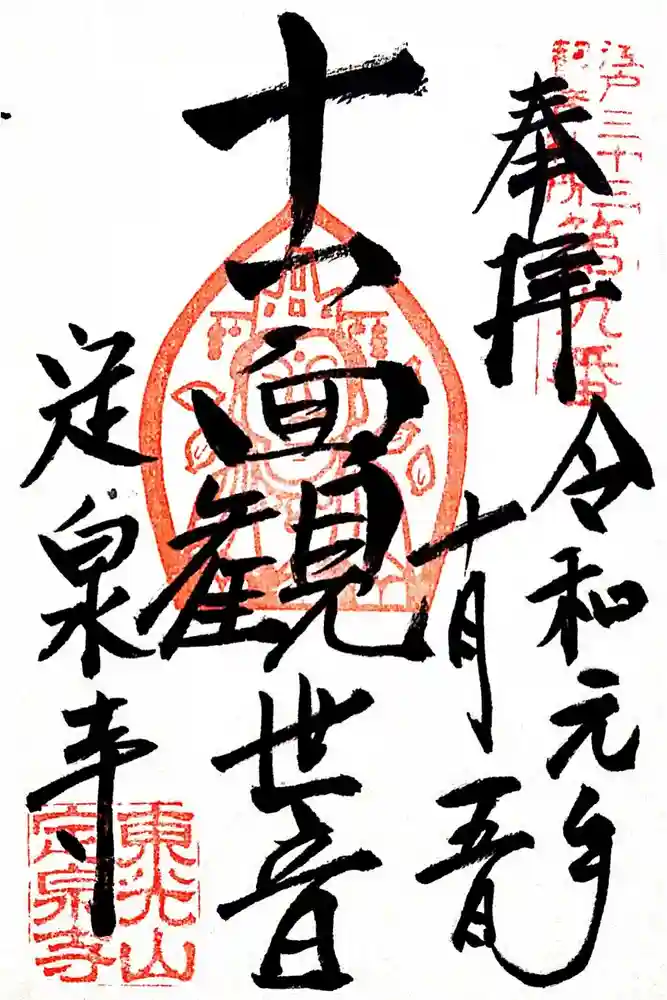 江戸三十三
観音札所
第九番
奉拝
令和元年
十月五日
十一面観世音
定泉寺
東光山
定泉寺